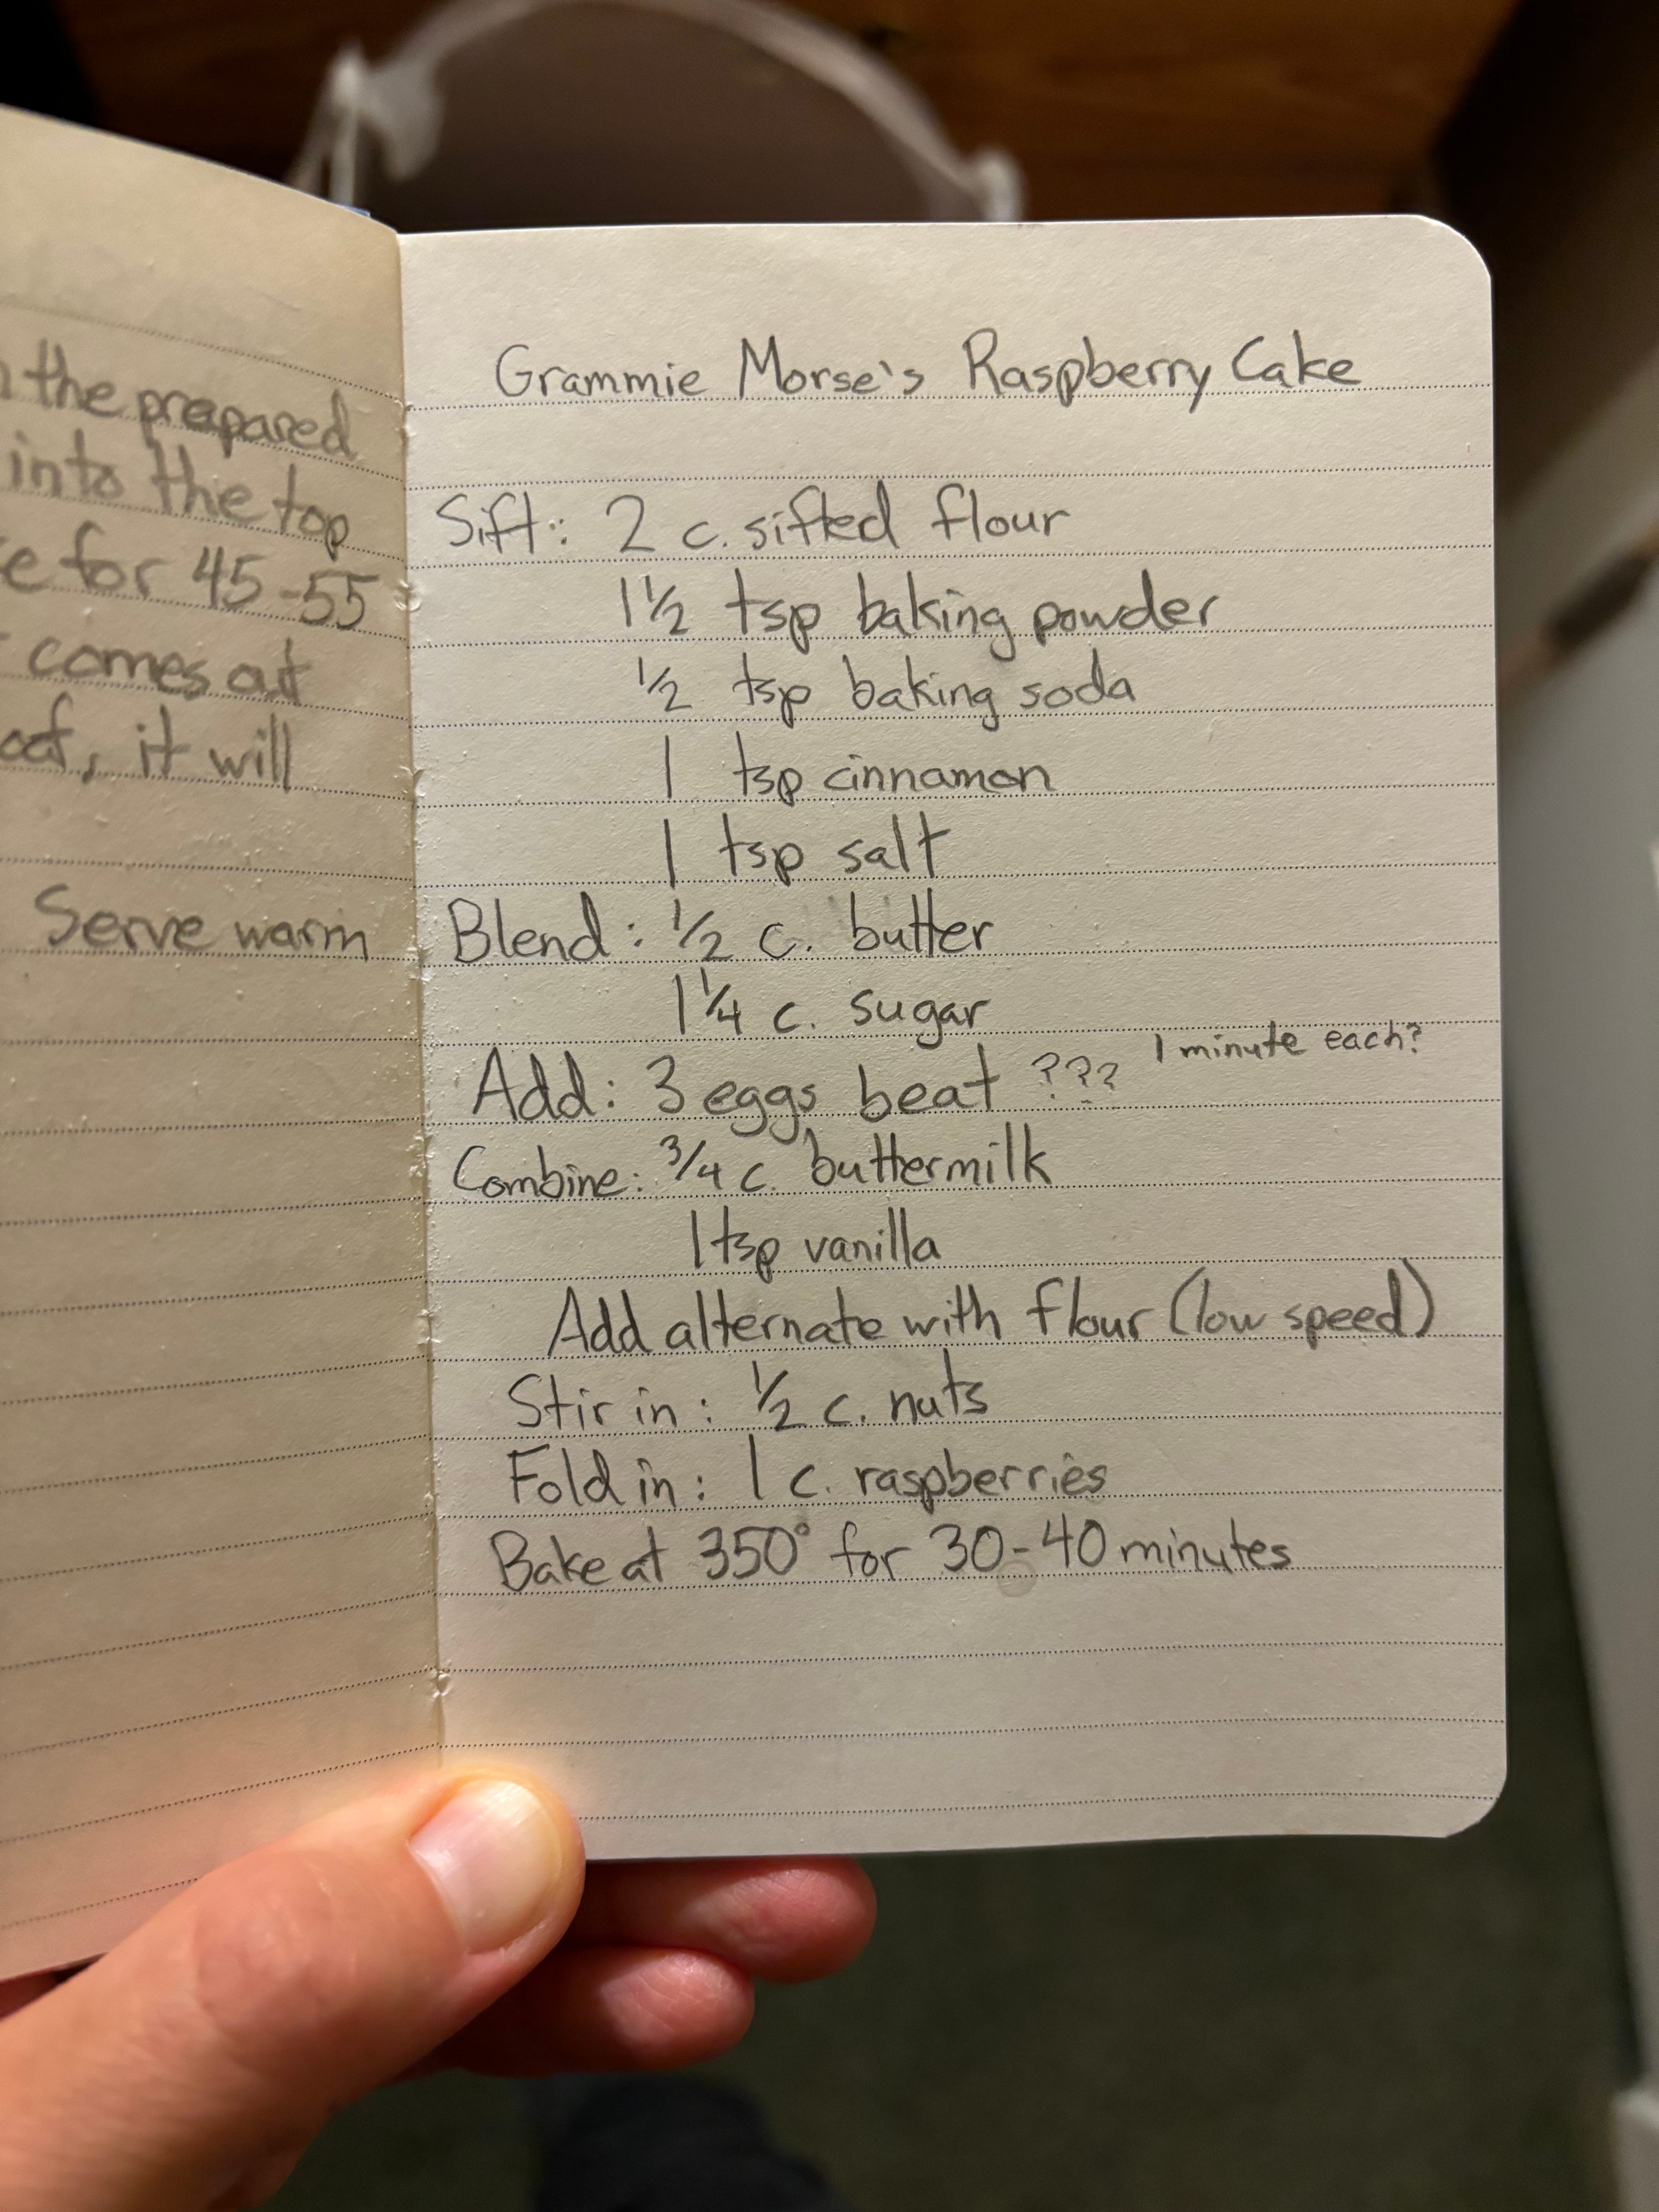 the prepared
into the top
for 45-55
comes out
it will
Serve warm
Grammie Morse's Raspberry Cake
Sift: 2 c. sifted flour
1 1/2 tsp baking powder
1/2 tsp baking soda
1 tsp cinnamon
1 tsp salt
Blend: 1/2 c. butter
1 1/4 c. sugar
Add: 3 eggs beat ??? 1 minute each?
Combine: 3/4 c. buttermilk
1 tsp vanilla
Add alternate with flour (low speed)
Stir in: 1/2 c. nuts
Fold in: 1 c. raspberries
Bake at 350° for 30-40 minutes